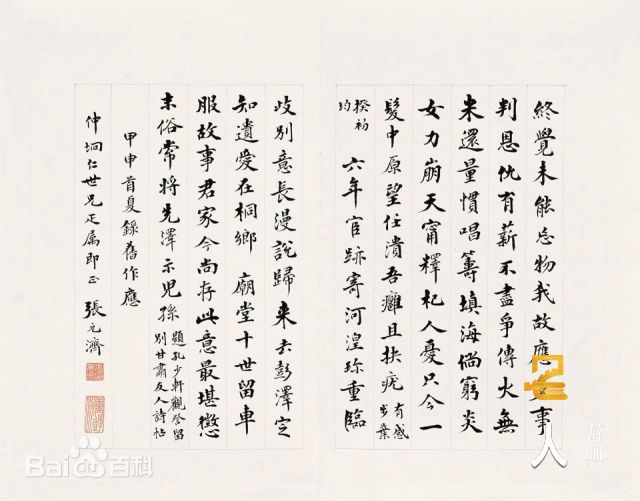 終覺未能忘物我故應事
判恩仇有薪不盡爭傳火無
米還量慣唱籌填海倘窮炎
女力崩天甯釋杞人憂只今一
髮中原望任潰吾癰且抉疣 有感步葉
揆初均 六年官跡寄河湟珎重臨
歧別意長漫說歸來去彭澤定
知遺愛在桐鄉 廟堂十世留車
服故事君家今尚存此意最堪懲
末俗常將先澤示兒孫 題孔少軒觀察留別甘肅友人詩帖
甲申首夏錄舊作應
仲坰仁世兄疋屬即正 張元濟
Bai 百科
人